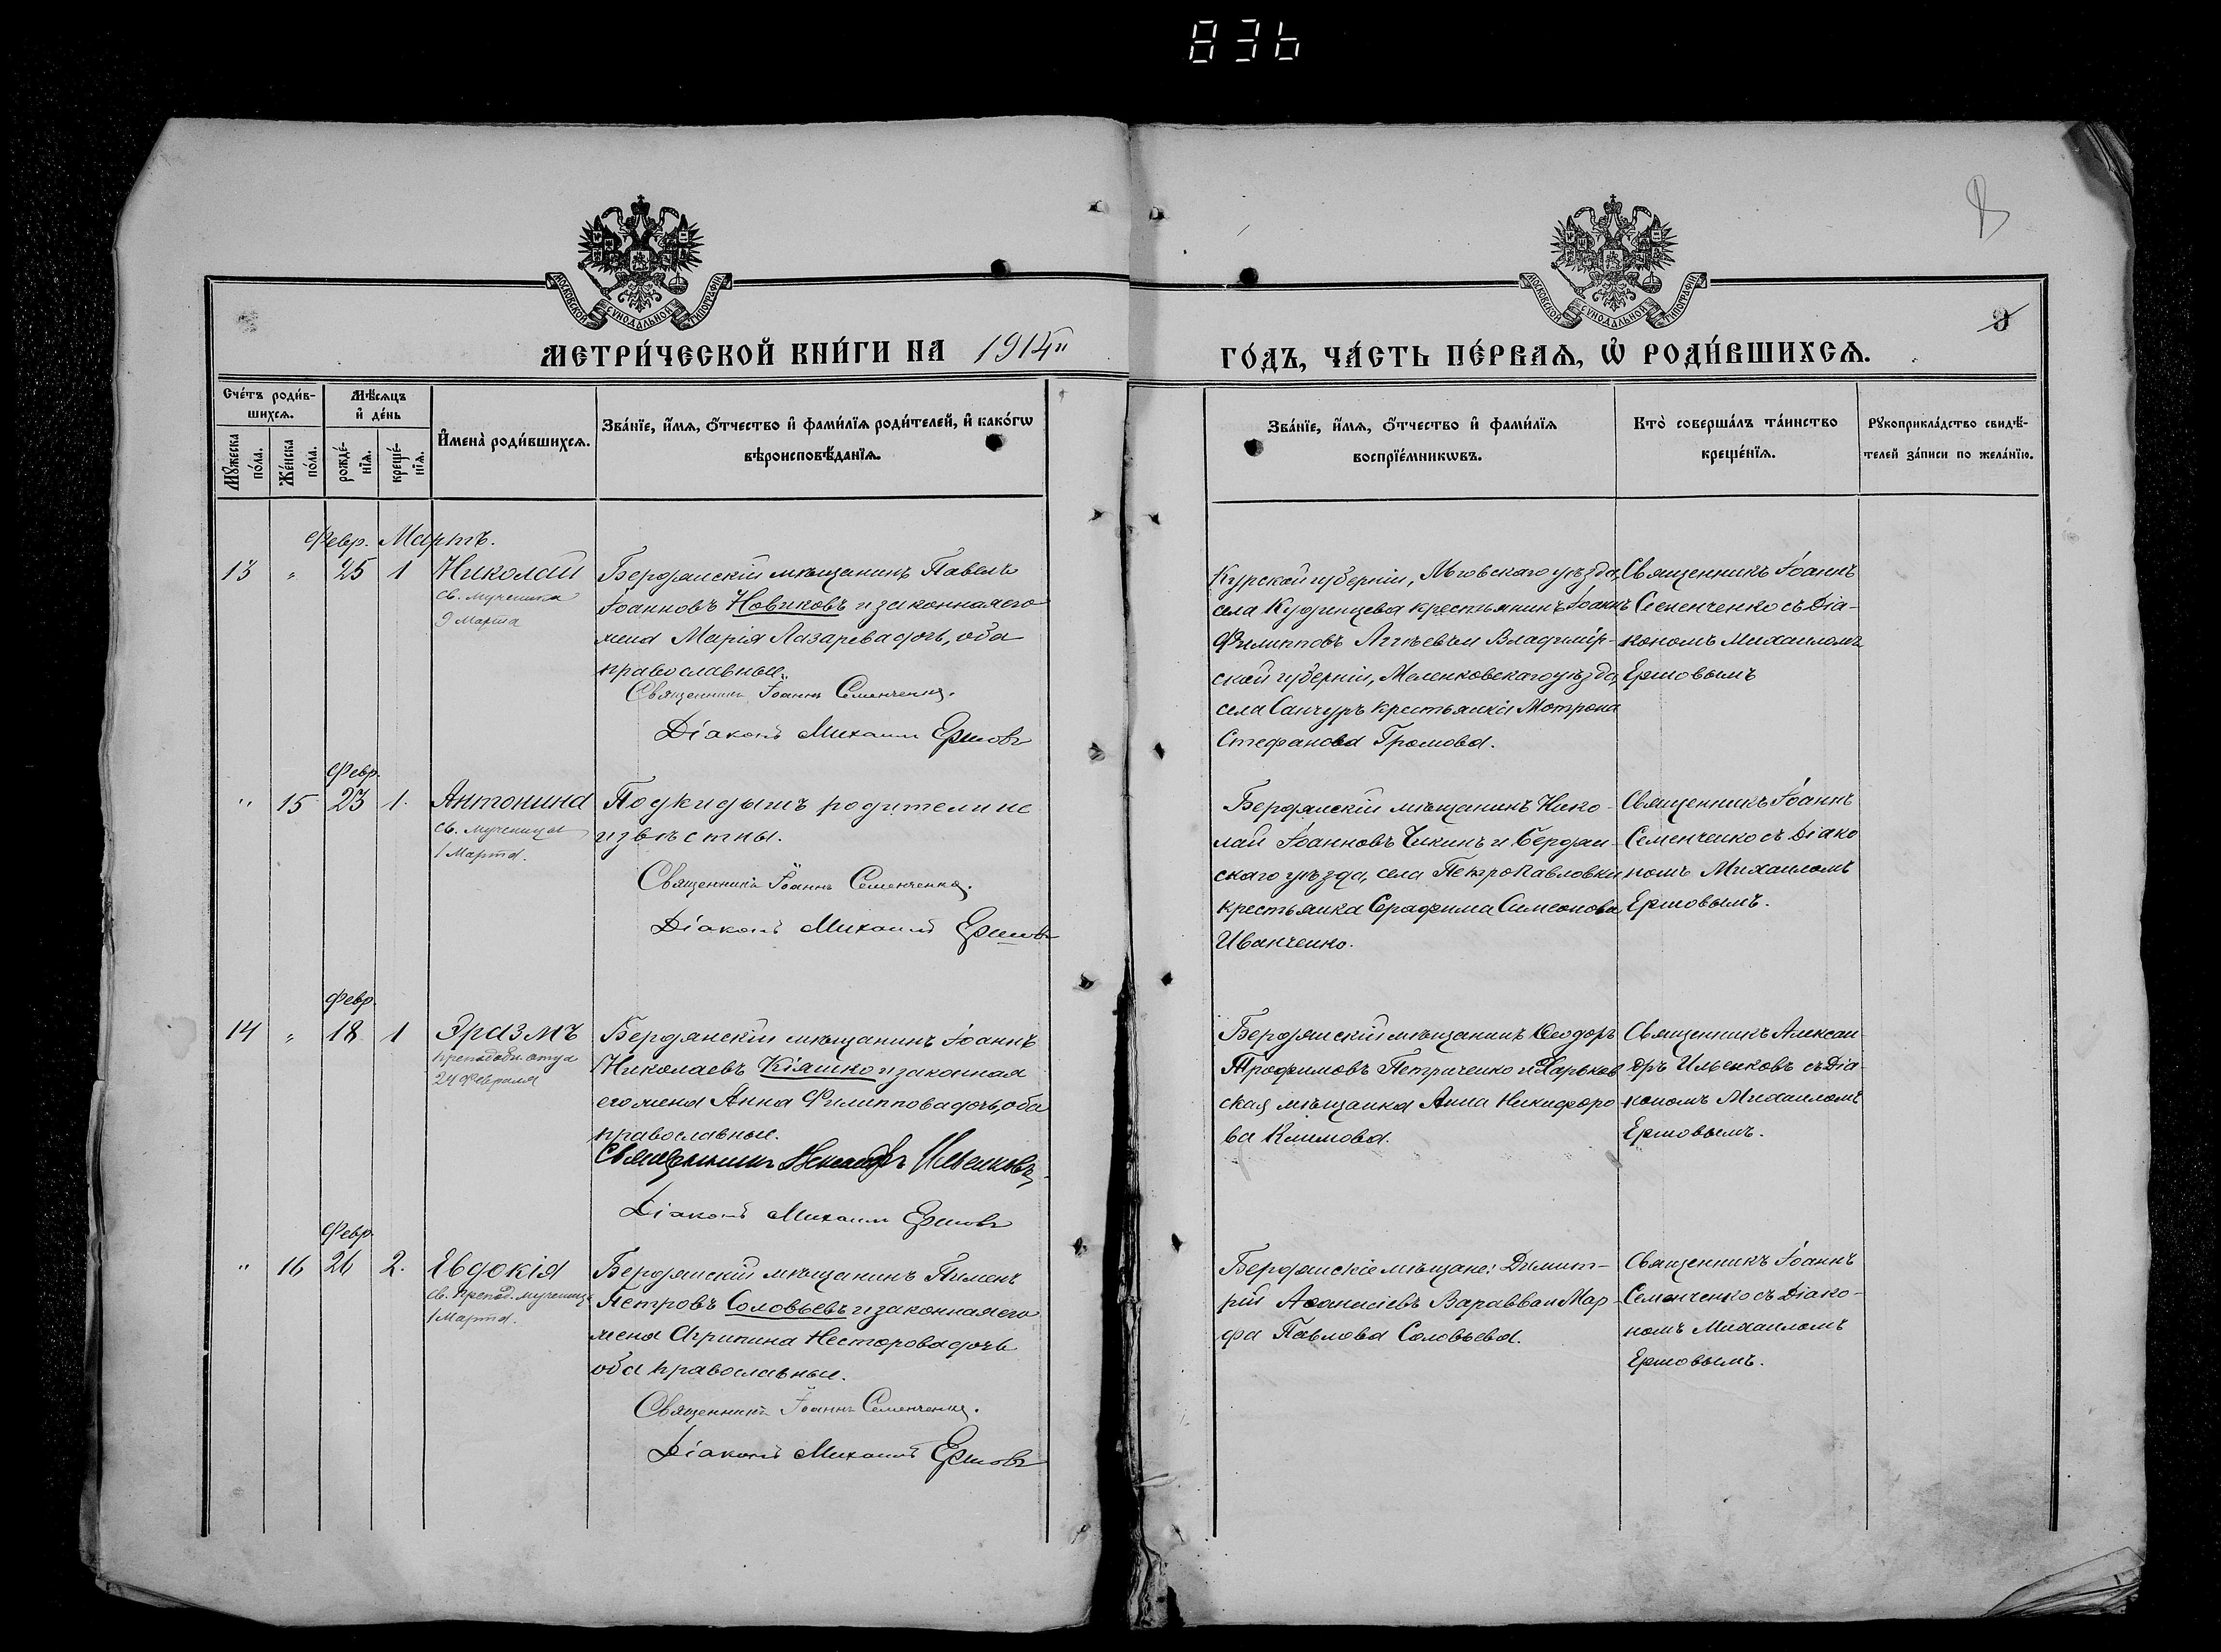 836
8
МОСКОВСКОЙ СУНОДАЛЬНОЙ ТИПОГРАФІИ
МОСКОВСКОЙ СУНОДАЛЬНОЙ ТИПОГРАФІИ
МЕТРИ́ЧЕСКОЙ КНИ́ГИ НА 1914"
ГО́ДЪ, ЧА́СТЬ ПЕ́РВАѦ, Ѡ҆ РОДИ́ВШИХСѦ.
Сче́тъ роди́в-
шихсѧ.
Мꙋ́жеска по́ла.
Же́нска по́ла.
Мѣ́сѧцъ
и҆ де́нь
рожде́-
нїѧ.
креще́-
нїѧ.
И҆мена̀ роди́вшихсѧ.
Зва́нїе, и҆́мѧ, ѻ҆́тчество и҆ фами́лїѧ роди́телей, и҆ како́гѡ
вѣроисповѣ́данїѧ.
Зва́нїе, и҆́мѧ, ѻ҆́тчество и҆ фами́лїѧ
воспрїе́мникѡвъ.
Кто̀ соверша́лъ та́инство
креще́нїѧ.
Рꙋкоприкла́дство свидѣ́-
телей за́писи по жела́нїю.
Февр. Мартъ.
13 " 25 1 Николай
св. мученика
9 Марта
Бердянскій мѣщанинъ Павелъ
Іоанновъ Новиковъ и законная его
жена Марія Лазарева дочь, оба
православные.
Священникъ Іоаннъ Семенченко.
Діаконъ Михаилъ Ершовъ
Курской губерніи, Льговскаго уѣзда,
села Кудинцева крестьянинъ Іоаннъ
Филипповъ и Владимір-
ской губерніи, Меленковскаго уѣзда,
села Санчуръ крестьянка Мотрона
Стефанова Громова.
Священникъ Іоаннъ
Семенченко съ Діа-
кономъ Михаиломъ
Ершовымъ
Февр.
" 15 23 1. Антонина
св. мученицы
1 Марта.
Подкидышъ родители не
извѣстны.
Священникъ Іоаннъ Семенченко.
Діаконъ Михаилъ Ершовъ
Бердянскій мѣщанинъ Нико-
лай Іоанновъ Чикинъ и Бердян-
скаго уѣзда, села Петропавловки
крестьянка Серафима Симеонова
Иванченко.
Священникъ Іоаннъ
Семенченко съ Діако
номъ Михаиломъ
Ершовымъ.
Февр.
14 " 18 1 Эразмъ
преподобн. отца
24 Февраля
Бердянскій мѣщанинъ Іоаннъ
Николаевъ Кіяшко и законная
его жена Анна Филиппова дочь, оба
православные.
Священникъ Александръ Ильенковъ
Діаконъ Михаилъ Ершовъ
Бердянскій мѣщанинъ Ѳеодоръ
Трофимовъ Петриченко и Харьков
ская мѣщанка Анна Никифоро
ва Климова.
Священникъ Алексан
дръ Ильенковъ съ Діа-
кономъ Михаиломъ
Ершовымъ.
Февр.
" 16 26 2. Евдокія
св. препод. мученицы
1 Марта.
Бердянскій мѣщанинъ Пименъ
Петровъ Соловьевъ и законная его
жена Агрипина Несторова дочь
оба православные.
Священникъ Іоаннъ Семенченко.
Діаконъ Михаилъ Ершовъ
Бердянскіе мѣщане: Димит-
рій Аѳанасіевъ Вараввa и Мар-
фа Павлова Соловьева.
Священникъ Іоаннъ
Семенченко съ Діако-
номъ Михаиломъ
Ершовымъ.